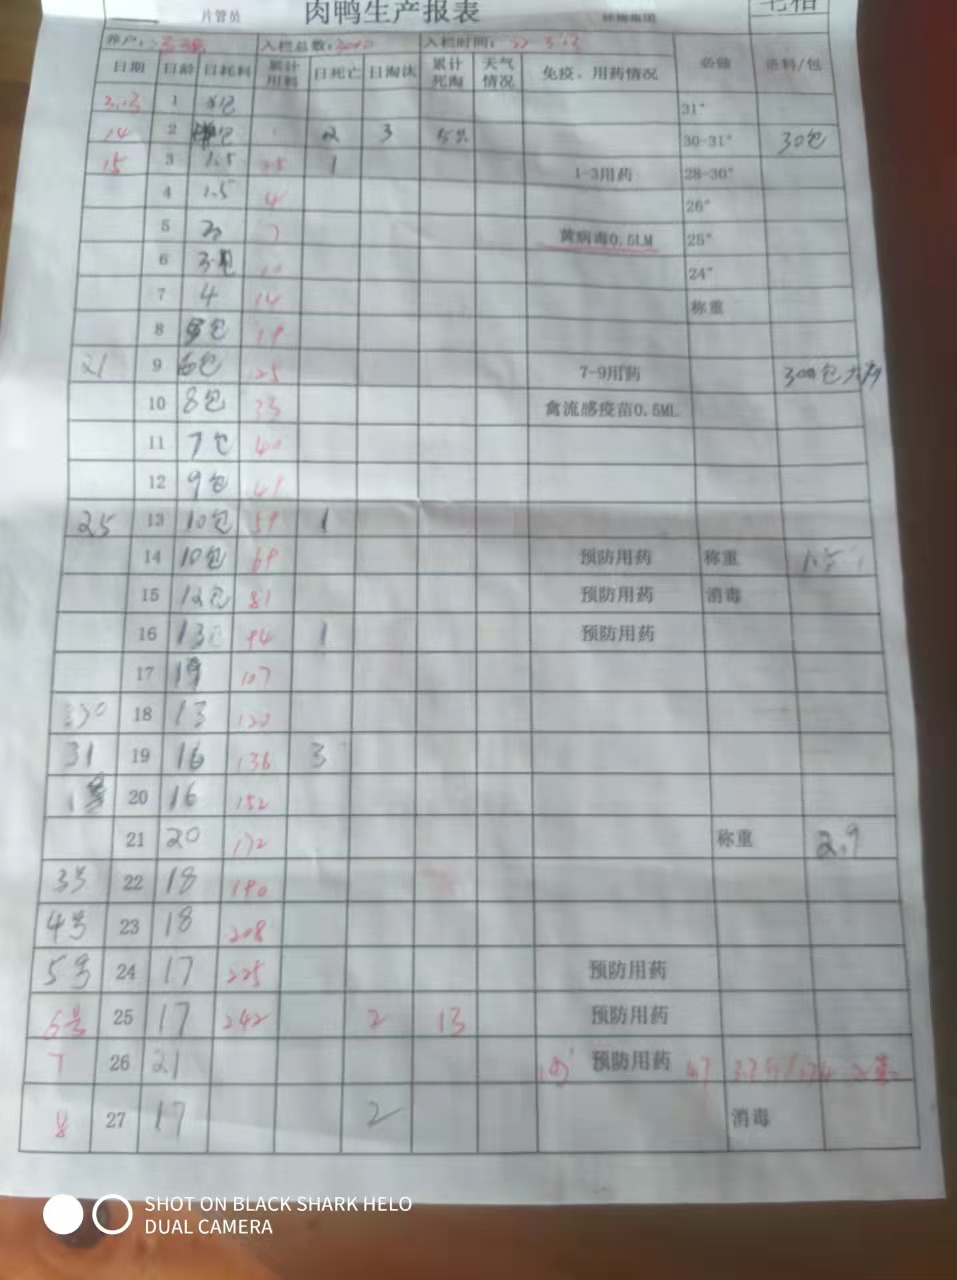 片管员 肉鸭生产报表
养户: 入栏总数: 入栏时间: 22 3.12
日期 日龄 日耗料 累计用料 日死亡 日淘汰 累计死淘 天气情况 免疫、用药情况 必做 进料/包
3.13 1 包 31°
14 2 包 2 3 30-31° 30包
15 3 1.5 2.5 1 1-3用药 28-30°
4 1.5 4 26°
5 黄病毒0.5LM 25°
6 24°
7 4 14 称重
8 包 19
21 9 6包 25 7-9用药
10 8包 33 禽流感疫苗0.5ML
11 7包 40
12 9包 49
25 13 10包 59 1
14 10包 69 预防用药 称重
15 12包 81 预防用药 消毒
16 13包 94 1 预防用药
17 107
30 18 13 120
31 19 16 136 3
1号 20 16 152
21 20 172 称重 2.9
3号 22 18 190
4号 23 18 208
5号 24 17 225 预防用药
6号 25 17 242 2 13 预防用药
7 26 21 预防用药
8 27 17 2 消毒
SHOT ON BLACK SHARK HELO
DUAL CAMERA